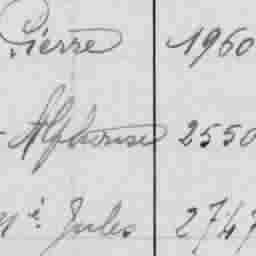 Pierre 1960
- Alphonse 2550
Mⁱ Jules 2747